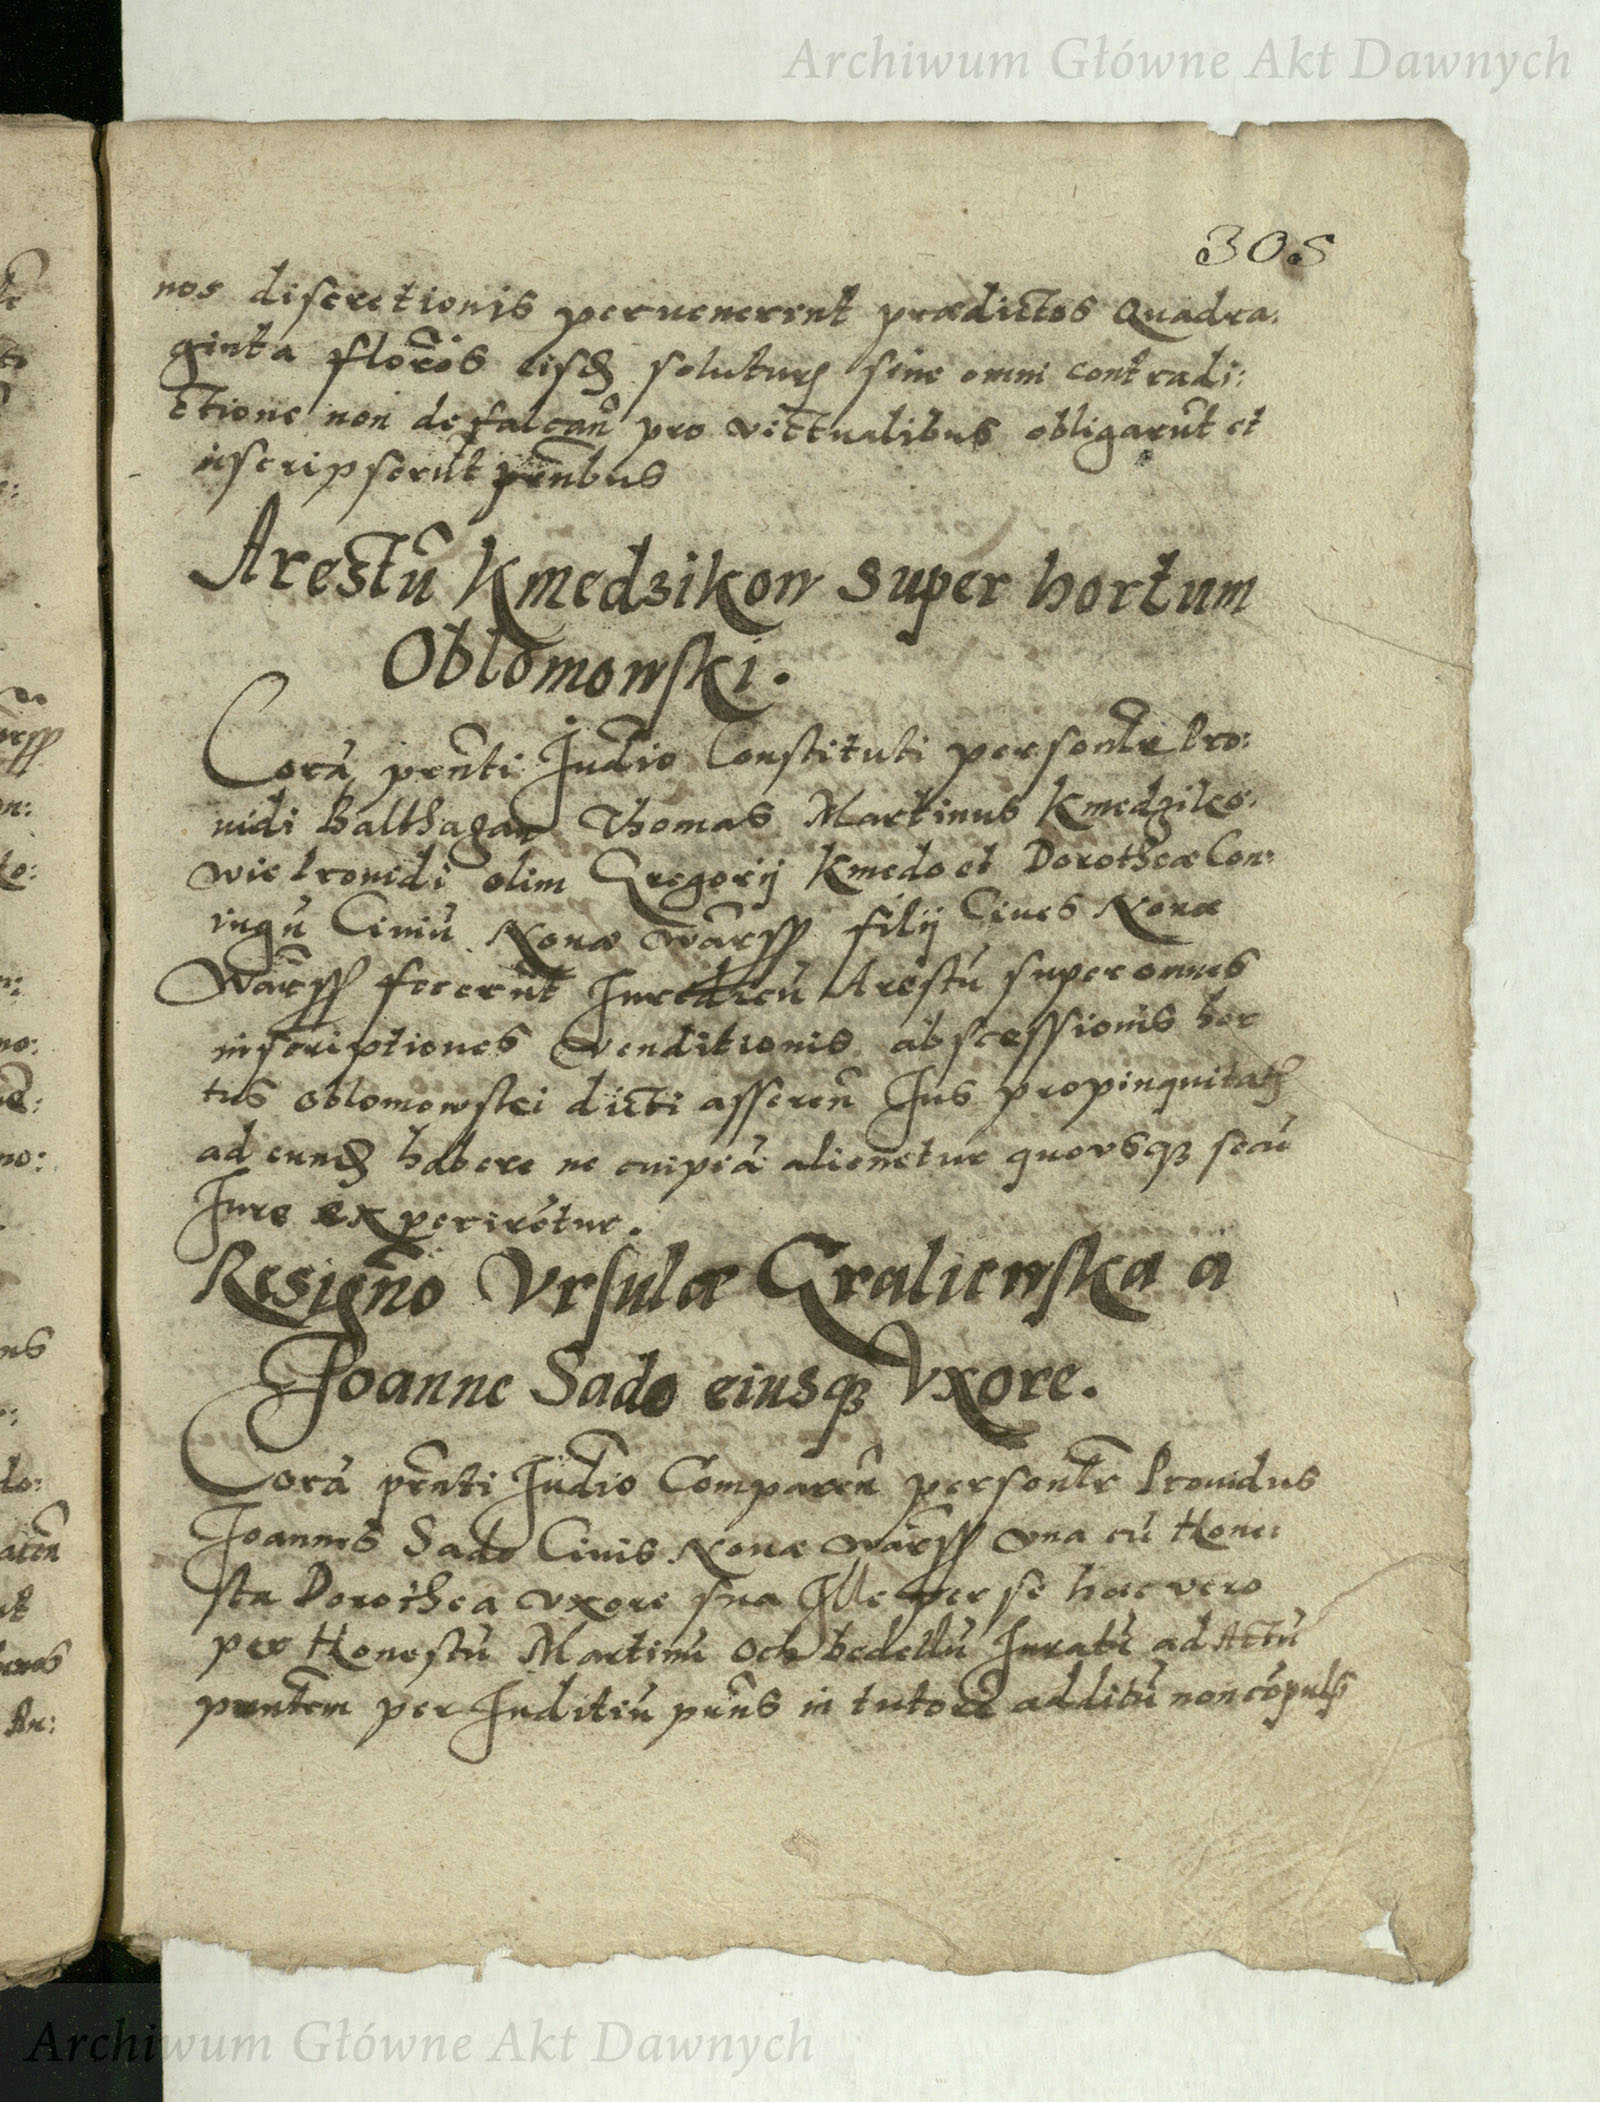 Archiwum Główne Akt Dawnych
305
nos discretionis pervenerint prædictos Quadra:
ginta florẽos eisdẽ soluturos sine omni contradi:
ctione non defalcañ pro victualibus obligarũt et
inscripserũt prñtibus
Arestũ Kmedzikow super hortum
Oblomowski.
Corã prñti Judĩo Constituti personlr Pro:
uidi Balthazar Thomas Martinus Kmedziko:
wie Prouidi olim Gregorij Kmedo et Dorotheæ Con:
iugũ Ciuiũ Nouæ Warss filij Ciues Nouæ
Warss fecerũt Juredicũ Arestũ super omnes
inscriptiones venditionis abscessionis hor
tus Oblomowski dicti asserẽn Jus propinquitatis
ad eundẽ habere ne cuipiã alienetur quovsq secũ
Jure experirẽtur.
Resigño Vrsulæ Graliewska a
Joanne Sado eiusq Vxore.
Corã prñti Judĩo Comparẽn personlr Prouidus
Joannes Sado Ciuis Nouæ Warss vna cũ Hone:
sta Dorothea vxore sua Ille per se hæc vero
per Honestũ Martinũ Och bedellũ Juratũ ad Actũ
prntem per Juditiũ prñs in tutorẽ additũ non cõpuls
Archiwum Główne Akt Dawnych